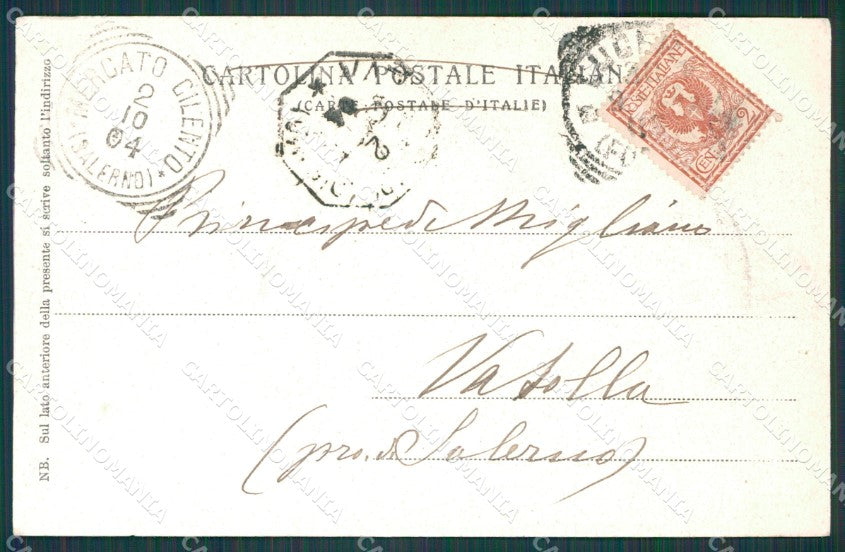 CARTOLINA POSTALE ITALIANA
(CARTE POSTALE D'ITALIE)
MERCATO CILENTO
2
10
04
(SALERNO)
POSTE ITALIANE
CENT 2
Principe di Migliano
Vatolla
(pro. di Salerno)
NB. Sul lato anteriore della presente si scrive soltanto l'indirizzo
CARTOLINOMANIA